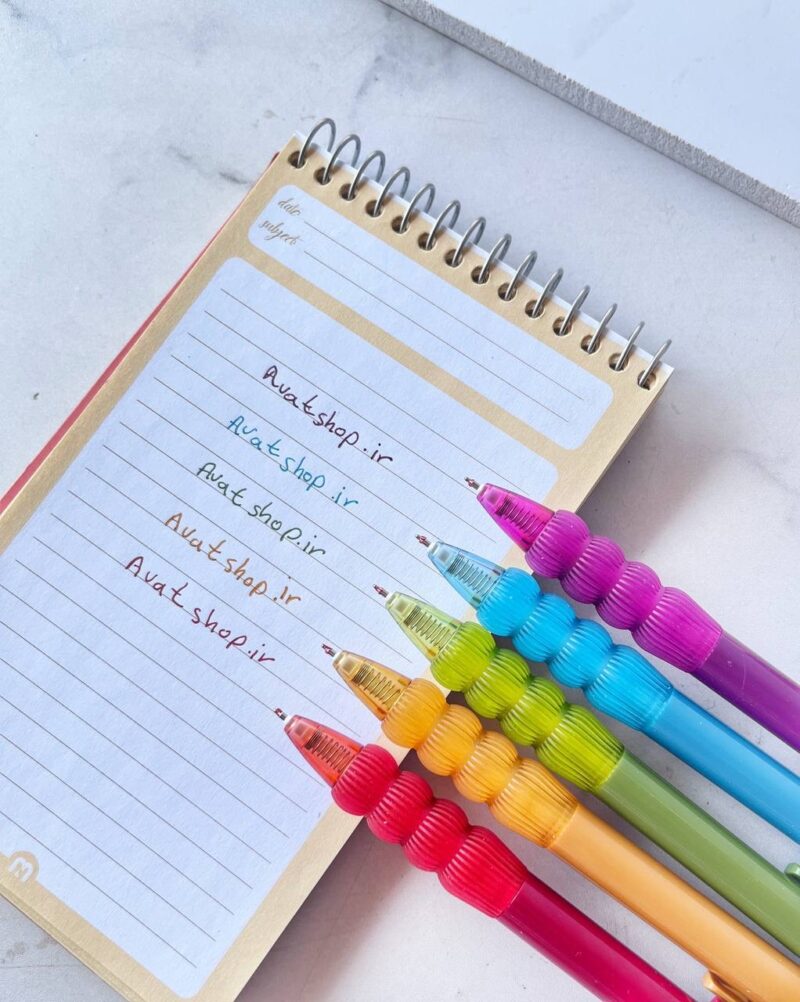 date
subject
Avatshop.ir
Avatshop.ir
Avatshop.ir
Avatshop.ir
Avatshop.ir
M